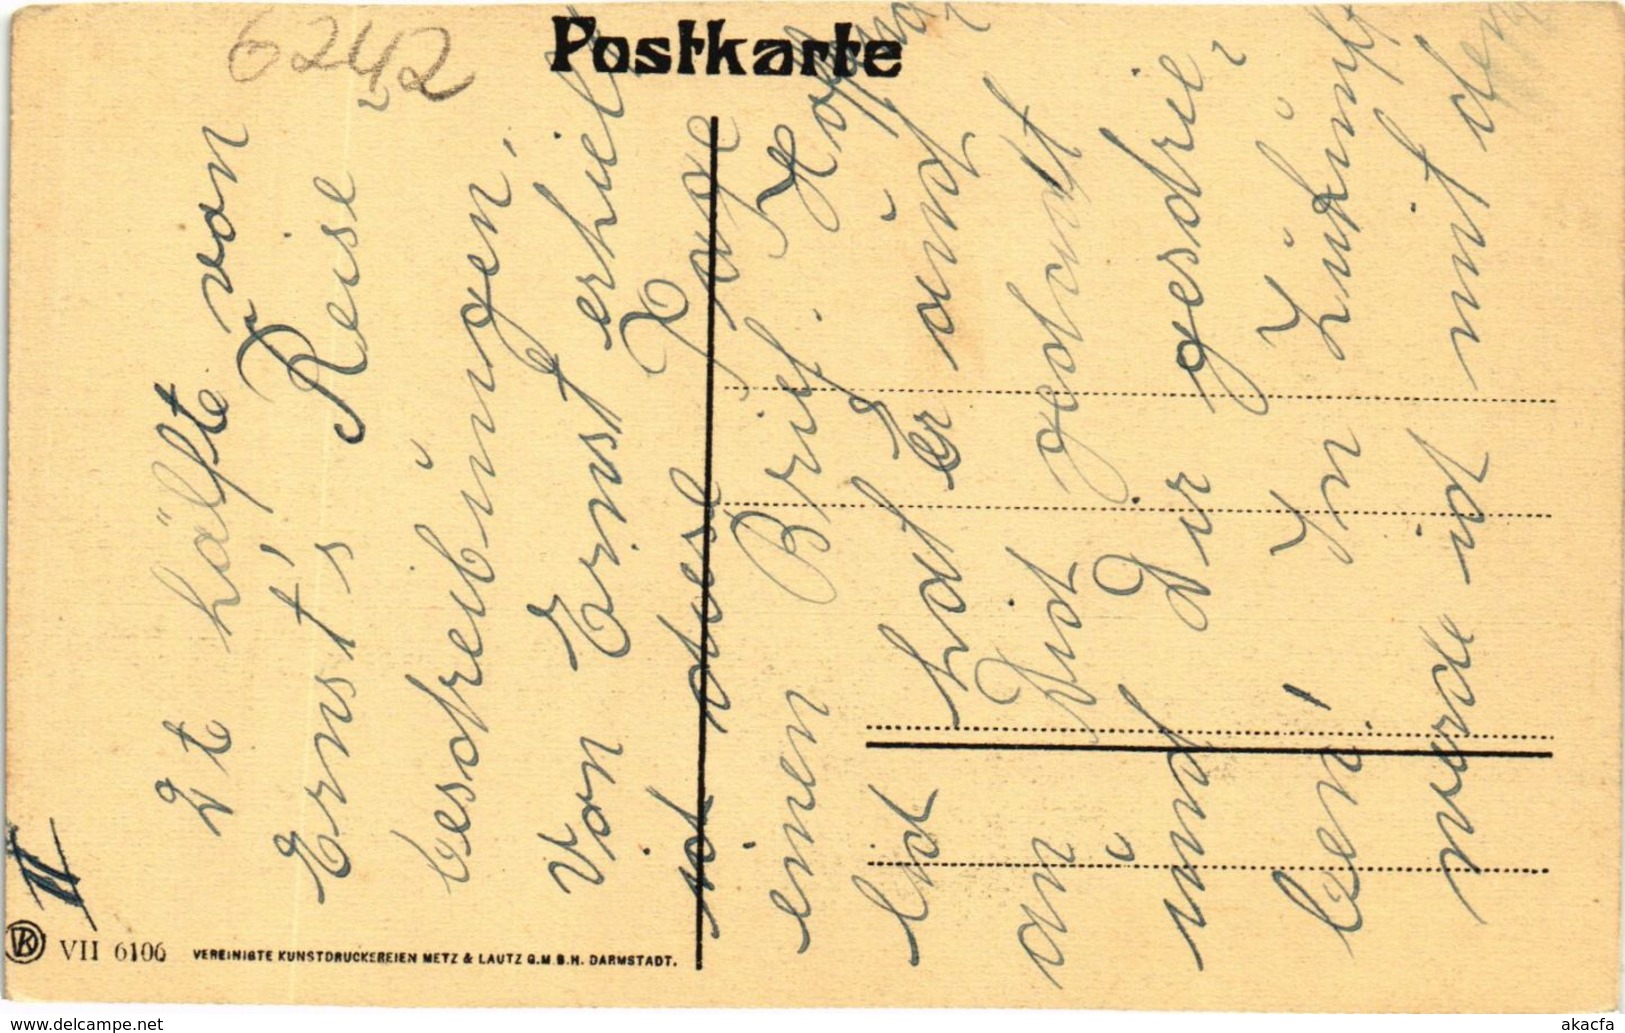 6242
Postkarte
II
2te hälfte von
Ernst's Reise
beschreibungen.
Von Ernst erhielt
ich diese Tage
einen Brief. Hoffent
lich hat er auch
an Dich gedacht
und Dir geschrie
ben! In Zukunft
werde ich mit den
VK VII 6106 VEREINIGTE KUNSTDRUCKEREIEN METZ & LAUTZ G.M.B.H. DARMSTADT.
www.delcampe.net
akacfa